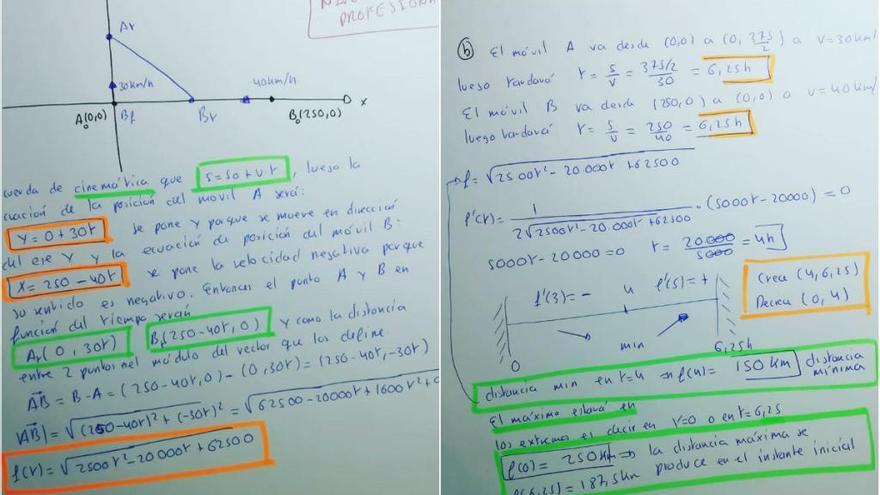 PROFESIONA
Ar
30km/h
40km/h
A₀(0,0)
Bf
Br
B₀(250,0)
x
uerda de cinemática que s=s₀+vt, luego la
cuación de la posición del movil A será:
Y=0+30t se pone y porque se mueve en dirección
del eje Y y la ecuación de posición del móvil B:
X=250-40t se pone la velocidad negativa porque
su sentido es negativo. Entonces el punto A y B en
función del tiempo serán
At(0,30t) Bt(250-40t,0) y como la distancia
entre 2 puntos el módulo del vector que los define
AB = B-A = (250-40t,0) - (0,30t) = (250-40t,-30t)
|AB| = √(250-40t)²+(-30t)² = √62500-20000t+1600t²+
f(t)=√2500t²-20000t+62500
(b) El móvil A va desde (0,0) a (0, 375/2) a v=30km/
luego tardará t = s/v = 375/2/30 = 6,25h
El móvil B va desde (250,0) a (0,0) a v=40km/
luego tardará t = s/v = 250/40 = 6,25h
f=√2500t²-20.000t+62500
f'(t)= 1/2√2500t²-20.000t+62500 · (5000t-20000) = 0
5000t-20000=0 t = 20000/5000 = 4h
f'(3)=- 4 f'(5)=+
min
0
6,25h
Crece (4,6,25)
Decrece (0,4)
distancia min en t=4 ⇒ f(4)= 150 km distancia mínima
El máximo estará en
los extremos es decir en t=0 o en t=6,25
f(0)= 250km ⇒ la distancia máxima se
f(6,25)=187,5km produce en el instante inicial